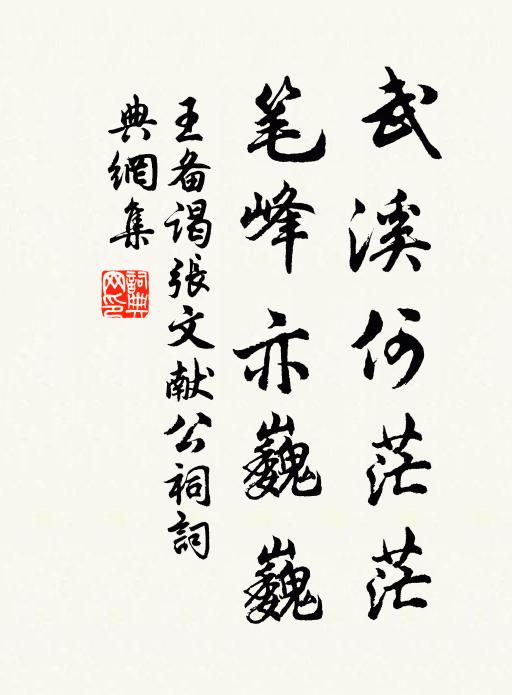 武溪何茫茫
笔峰亦巍巍
王备谒张文献公祠詞
典網集
詞典网印